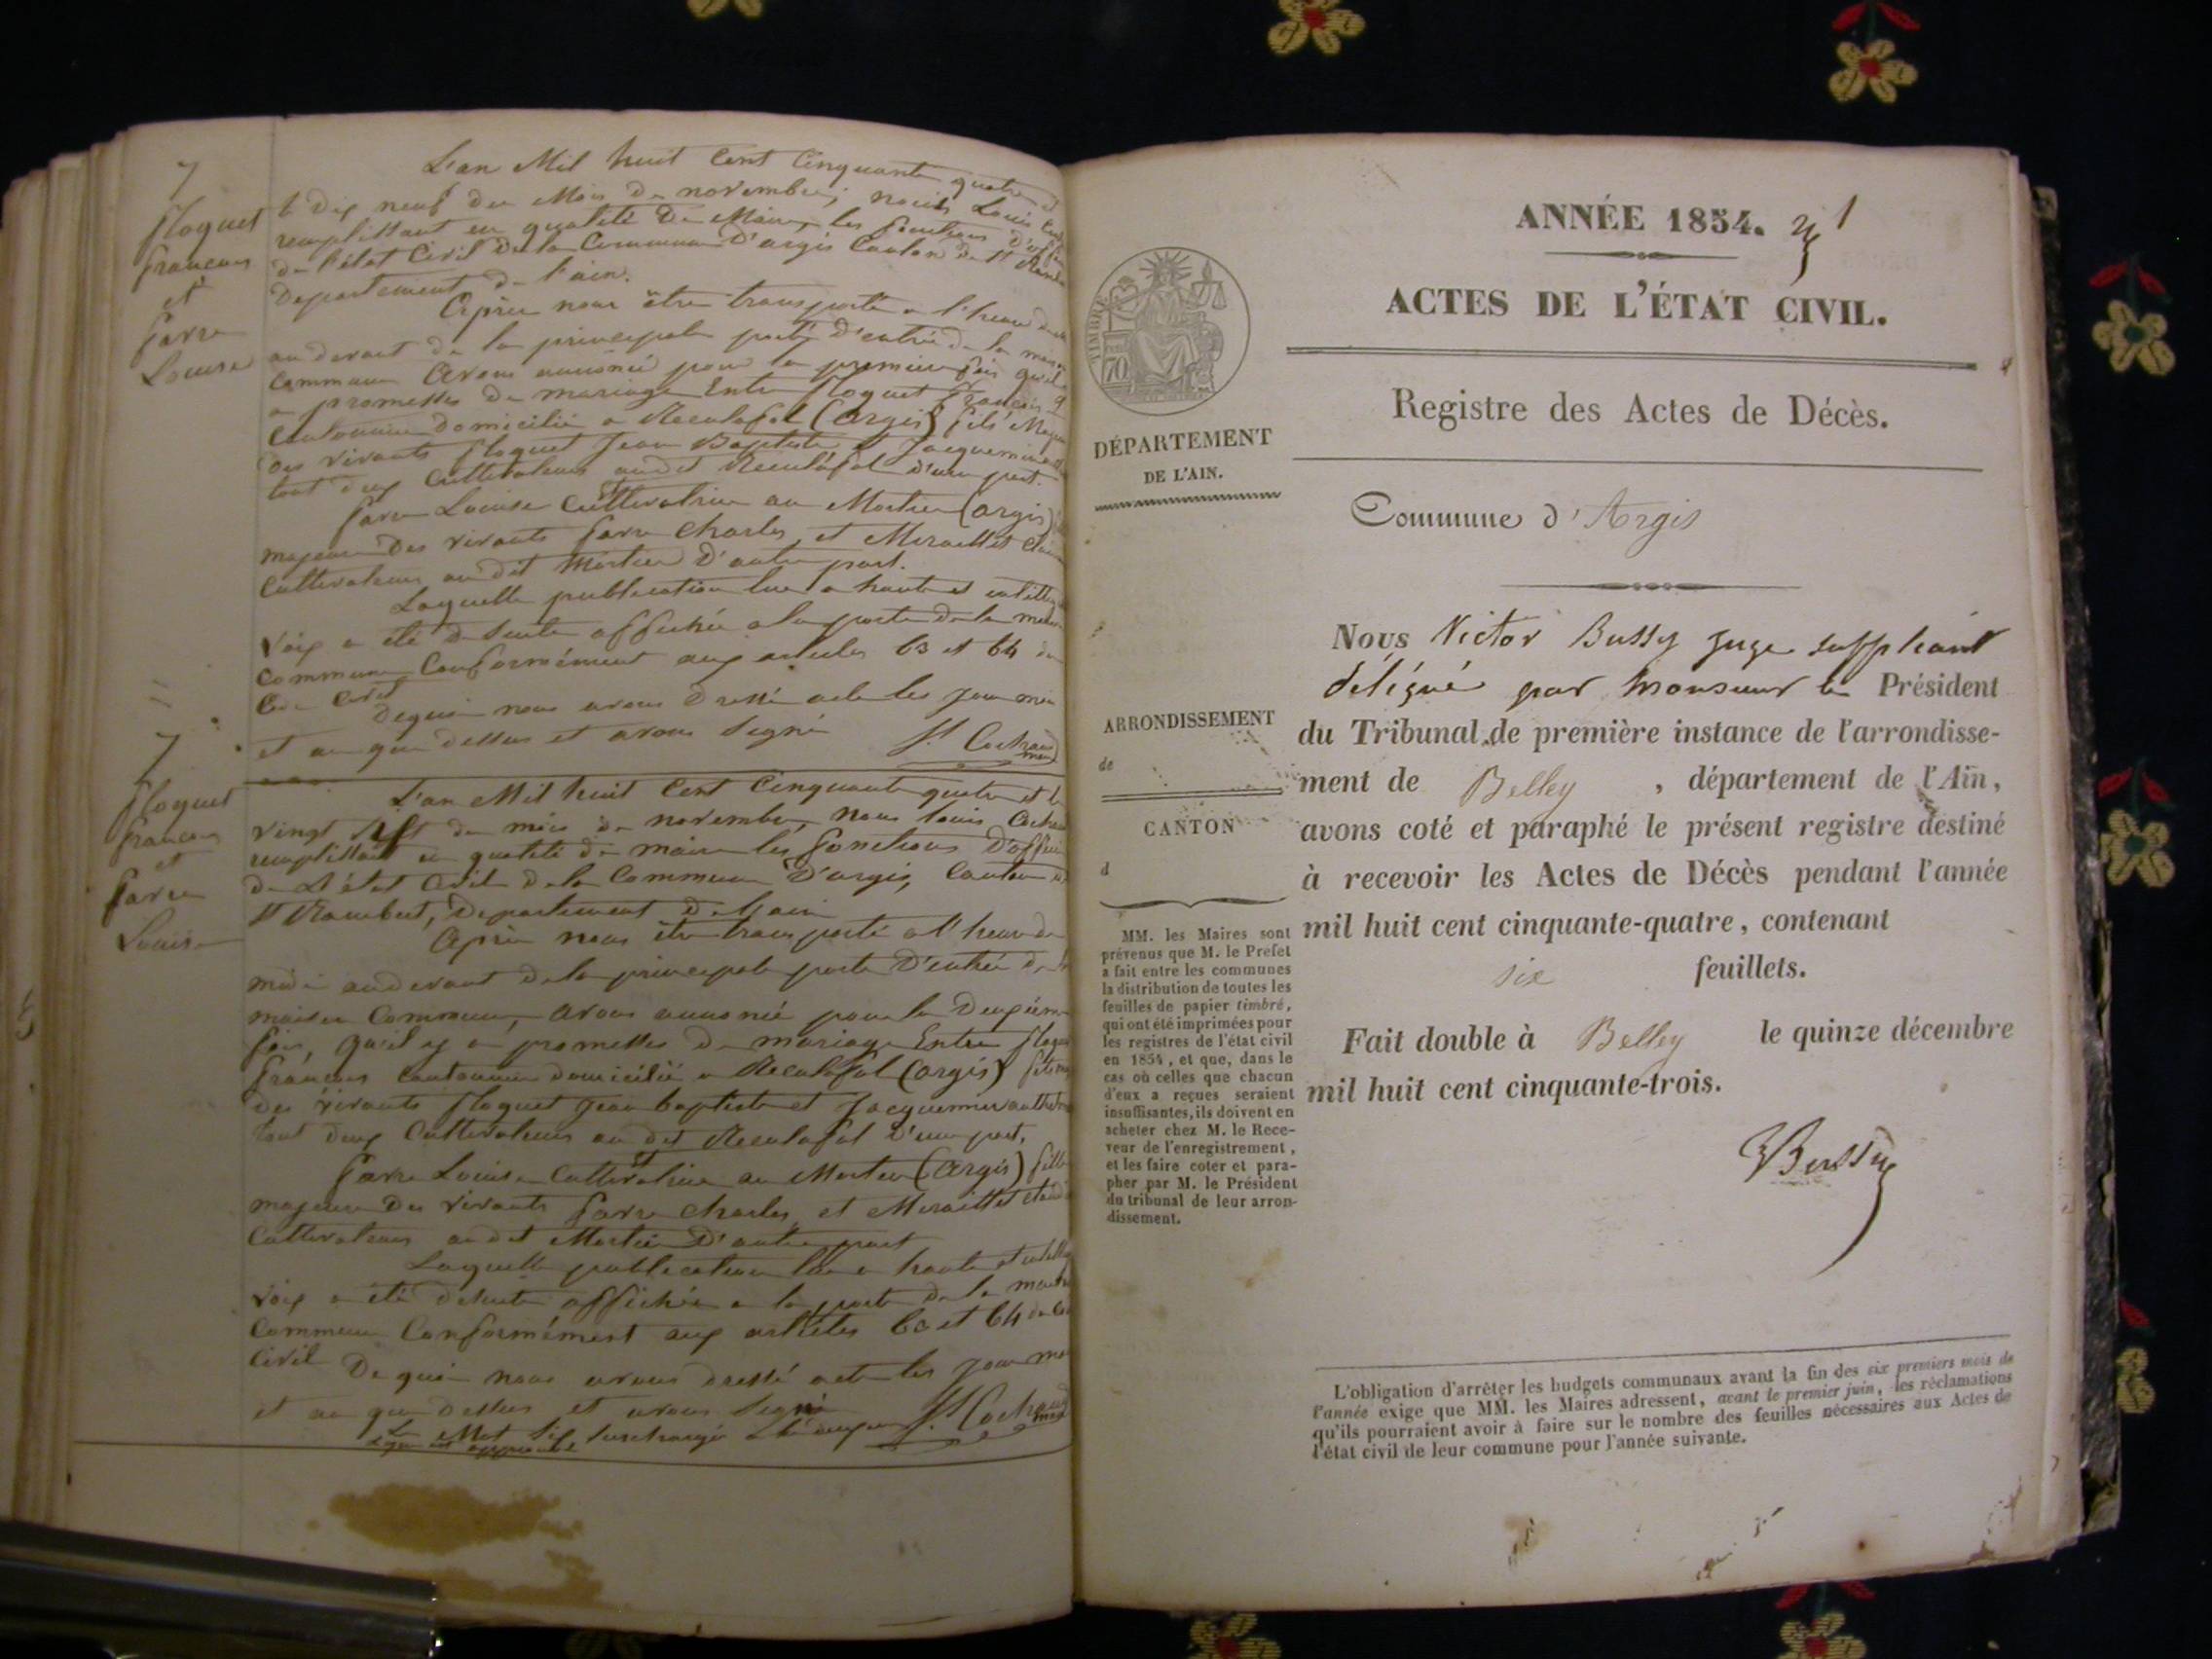 7
floquet
francois
et
farre
Louise
L'an Mil huit Cent Cinquante quatre et
t dix neuf du Mois de novembre, nous Louis
remplissant en qualité de Maire, les fonctions d'
de l'état Civil de la Commune D'argis Canton de St
Departement de l'ain.
Après nous être transporté a l'heure de
au devant de la principale porte D'entrée de la
Commune avons annoncé pour la premiere fois qu'il
a promesses de mariage Entre floquet François
Cantonnier domicilié a Reculafol (Argis) fils
des vivants floquet Jean Baptiste et Jacquemin
tout deux Cultivateurs audit Reculafol d'une part.
et
farre Louise Cultivatrice au Mortier (argis)
majeure Des vivants farre Charles, et Miraillet
Cultivateurs audit Mortier D'autre part.
Laquelle publication lue a haute et
voix a été de suite affichée a la porte de la
Commune Conformément aux articles 63 et 64 du
Code Civil
De quoi nous avons Dressé acte les jour mois
et an que dessus et avons signé
7
floquet
francois
et
farre
Louise
L'an Mil huit Cent Cinquante quatre et le
vingt six du mois de novembre, nous Louis
remplissant en qualité de maire les fonctions D'
De L'état Civil de la Commune D'argis, Canton de
St Rambert, Departement de l'ain
Après nous être transporté a l'heure de
midi au devant de la principale porte D'entrée de
maison Commune, avons annoncé pour la Deuxième
fois, qu'il y a promesses de mariage Entre
François Cantonnier domicilié a Reculafol (argis)
des vivants floquet Jean baptiste et Jacquemin
tout deux Cultivateurs au dit Reculafol D'une part,
et
farre Louise Cultivatrice au Mortier (argis) fille
majeure Des vivants farre charles, et Miraillet
Cultivateurs au dit Mortier D'autre part
Laquelle publication lue a haute et
voix a été de suite affichée a la porte de la
Commune Conformément aux articles 63 et 64 du
Civil
De quoi nous avons dressé acte les jour
et an que dessus et avons signé
Le Mot six surchargé
approuvé
ANNÉE 1854. 1
ACTES DE L'ÉTAT CIVIL.
Registre des Actes de Décès.
TIMBRE
70
DÉPARTEMENT
DE L'AIN.
Commune d'Argis
Nous Victor Bussy Juge suppléant
délégué par Monsieur le Président
du Tribunal de première instance de l'arrondisse-
ment de Belley, département de l'Ain,
avons coté et paraphé le présent registre destiné
à recevoir les Actes de Décès pendant l'année
mil huit cent cinquante-quatre, contenant
six feuillets.
Fait double à Belley le quinze décembre
mil huit cent cinquante-trois.
VBussy
ARRONDISSEMENT
de
CANTON
d
MM. les Maires sont
prévenus que M. le Préfet
a fait entre les communes
la distribution de toutes les
feuilles de papier timbré,
qui ont été imprimées pour
les registres de l'état civil
en 1854, et que, dans le
cas où celles que chacun
d'eux a reçues seraient
insuffisantes, ils doivent en
acheter chez M. le Rece-
veur de l'enregistrement,
et les faire coter et para-
pher par M. le Président
du tribunal de leur arron-
dissement.
L'obligation d'arrêter les budgets communaux avant la fin des six premiers mois de
l'année exige que MM. les Maires adressent, avant le premier juin, les réclamations
qu'ils pourraient avoir à faire sur le nombre des feuilles nécessaires aux Actes de
l'état civil de leur commune pour l'année suivante.